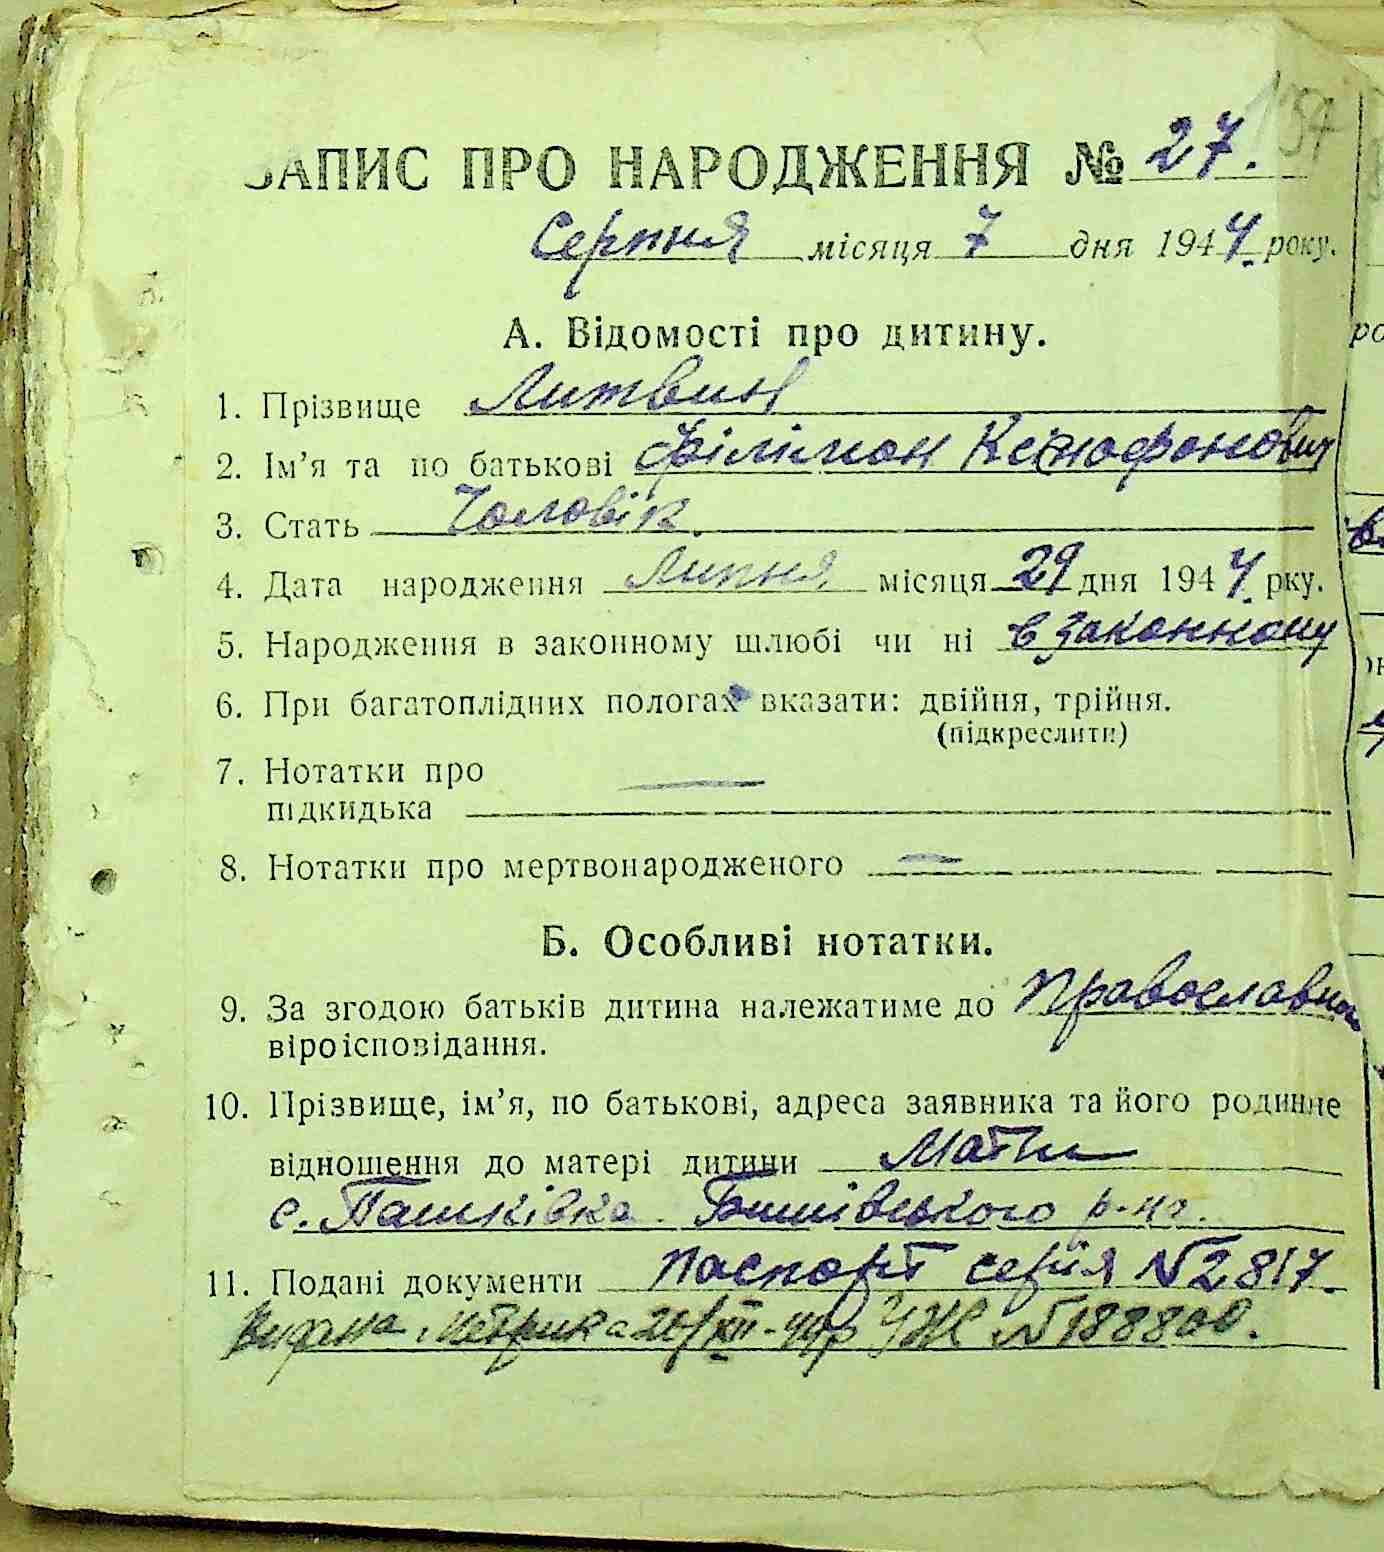 157
ЗАПИС ПРО НАРОДЖЕННЯ № 27.
Серпня місяця 7 дня 1944. року.
А. Відомості про дитину.
1. Прізвище Литвин
2. Ім’я та по батькові Філімон Ксенофонович
3. Стать Чоловік.
4. Дата народження Липня місяця 29 дня 1944. рку.
5. Народження в законному шлюбі чи ні в законному
6. При багатоплідних пологах вказати: двійня, трійня.
(підкреслити)
7. Нотатки про
підкидька —
8. Нотатки про мертвонародженого —
Б. Особливі нотатки.
9. За згодою батьків дитина належатиме до Православного
віроісповідання.
10. Прізвище, ім’я, по батькові, адреса заявника та його родинне
відношення до матері дитини Мати
с. Пашківка Бишівського р-ну.
11. Подані документи паспорт серія № 2817.
Видана метрика 20/XII-44р УЖ № 188800.